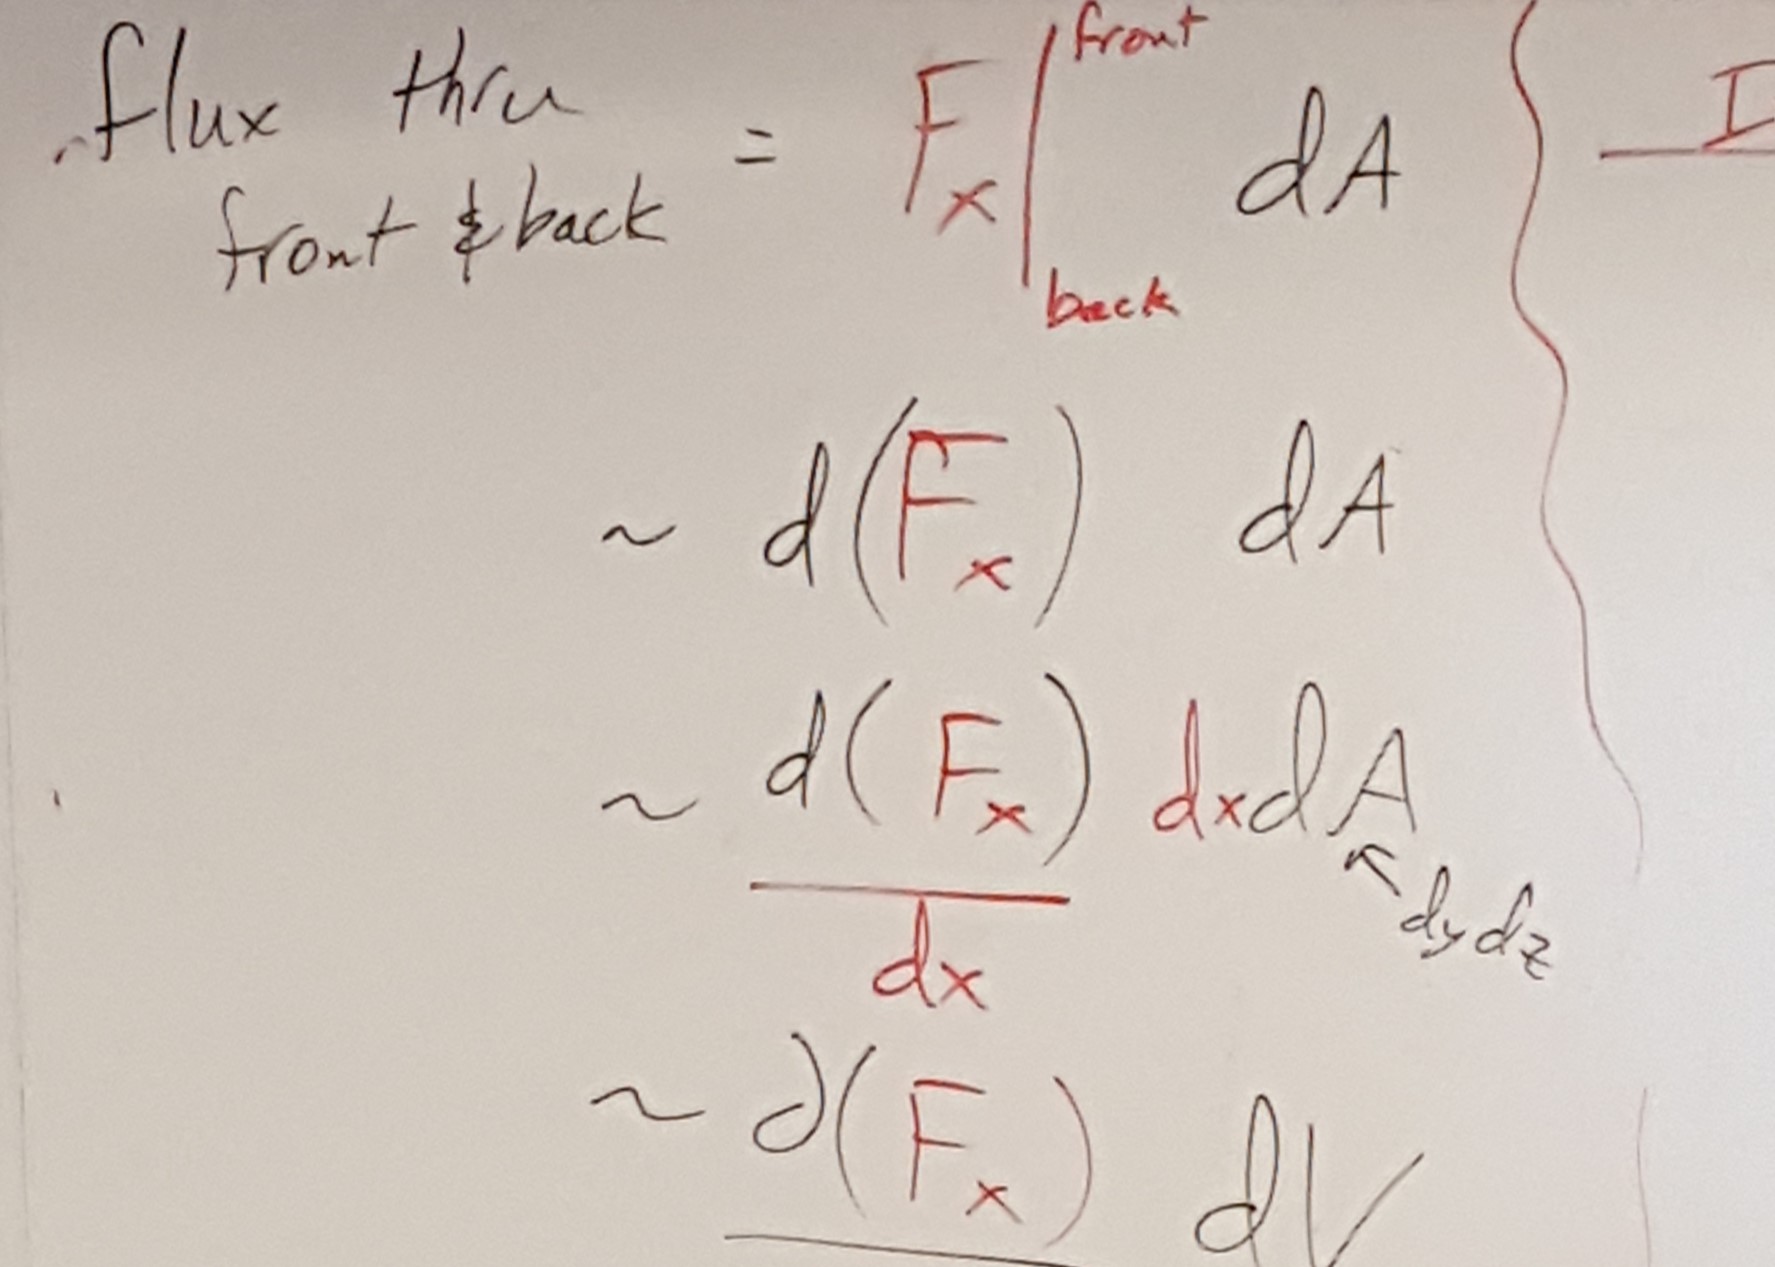 flux thru
front & back = F_x |_back^front dA
~ d(F_x) dA
~ d(F_x) dx dA
dx
dy dz
~ ∂(F_x) dV